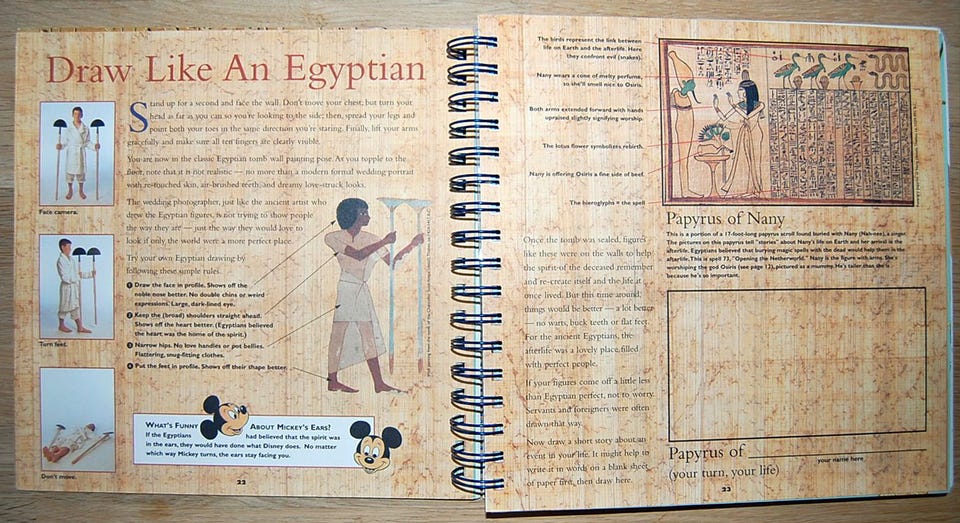 Draw Like An Egyptian
Stand up for a second and face the wall. Don't move your chest, but turn your
head as far as you can so you're looking to the side; then, spread your legs and
point both your toes in the same direction you're staring. Finally, lift your arms
gracefully and make sure all ten fingers are clearly visible.
You are now in the classic Egyptian tomb wall painting pose. As you topple to the
floor, note that it is not realistic — no more than a modern formal wedding portrait
with re-touched skin, air-brushed teeth, and dreamy love-struck looks.
The wedding photographer, just like the ancient artist who
drew the Egyptian figures, is not trying to show people
the way they are — just the way they would love to
look if only the world were a more perfect place.
Try your own Egyptian drawing by
following these simple rules.
1 Draw the face in profile. Shows off the
noble nose better. No double chins or weird
expressions. Large, dark-lined eye.
2 Keep the (broad) shoulders straight ahead.
Shows off the heart better. (Egyptians believed
the heart was the home of the spirit.)
3 Narrow hips. No love handles or pot bellies.
Flattering, snug-fitting clothes.
4 Put the feet in profile. Shows off their shape better.
Face camera.
Turn feet.
Don't move.
WHAT'S FUNNY ABOUT MICKEY'S EARS?
If the Egyptians had believed that the spirit was
in the ears, they would have done what Disney does. No matter
which way Mickey turns, the ears stay facing you.
22
The birds represent the link between
life on Earth and the afterlife. Here
they confront evil (snakes).
Nany wears a cone of melty perfume,
so she'll smell nice to Osiris.
Both arms extended forward with hands
upraised slightly signifying worship.
The lotus flower symbolizes rebirth.
Nany is offering Osiris a fine side of beef.
The hieroglyphs = the spell
Once the tomb was sealed, figures
like these were on the walls to help
the spirit of the deceased remember
and re-create itself and the life it
once lived. But this time around,
things would be better — a lot better
— no warts, buck teeth or flat feet.
For the ancient Egyptians, the
afterlife was a lovely place filled
with perfect people.
If your figures come off a little less
than Egyptian perfect, not to worry.
Servants and foreigners were often
drawn that way.
Now draw a short story about an
event in your life. It might help to
write it in words on a blank sheet
of paper first, then draw here.
Papyrus of Nany
This is a portion of a 17-foot-long papyrus scroll found buried with Nany (Nah-nee), a singer.
The pictures on this papyrus tell "stories" about Nany's life on Earth and her arrival in the
afterlife. Egyptians believed that burying magic spells with the dead would help them in the
afterlife. This is spell 73, "Opening the Netherworld." Nany is the figure with arms. She's
worshiping the god Osiris (see page 12), pictured as a mummy. He's taller than she is
because he's so important.
Papyrus of
your name here
(your turn, your life)
23